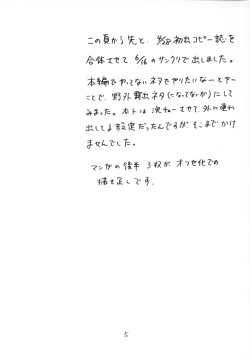 この頁から先と、5/25初出コピー誌を
合体させて 6/16 のサンクリで出しました。
本編でやってないネタでやりたいなーとゆー
ことで、野外露出ネタ(になってなゲ)にして
みました。ホトは決チューさせて、外に連れ
出してる設定だったんですが、そこまでかけ
ませんでした。
マンガの後半 3枚が オフセ化での
描き足しです。
5